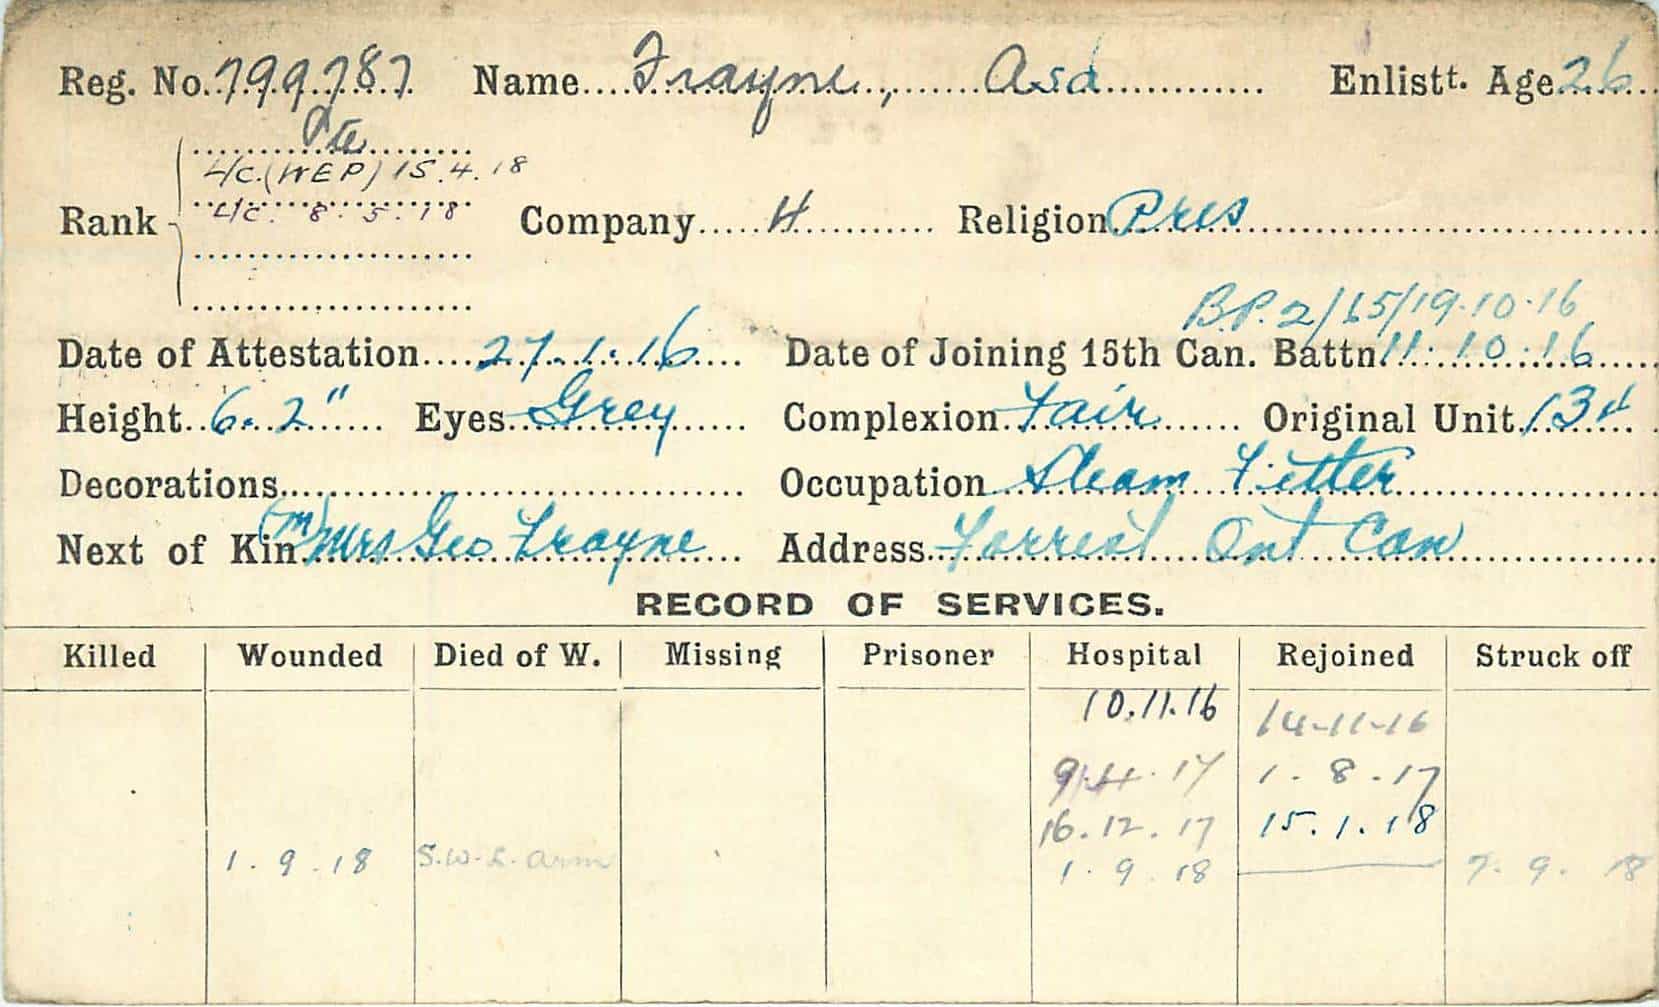 Reg. No. 799787 Name Frayne, Asa Enlistt. Age 26
Pte
L/C. (WEP) 15.4.18
L/C. 8.5.18
Rank Company 4 Religion Pres
B.P. 2/15/19.10.16
Date of Attestation 27.1.16 Date of Joining 15th Can. Battn. 11.10.16
Height 6.2" Eyes Grey Complexion Fair Original Unit 134
Decorations Occupation Steam Fitter
Next of Kin (m) Mrs Geo Frayne Address Forrest Ont Can
RECORD OF SERVICES.
Killed Wounded Died of W. Missing Prisoner Hospital Rejoined Struck off
10.11.16 14-11-16
9.4.17 1.8.17
16.12.17 15.1.18
1.9.18 S.W. L. arm 1.9.18 7.9.18